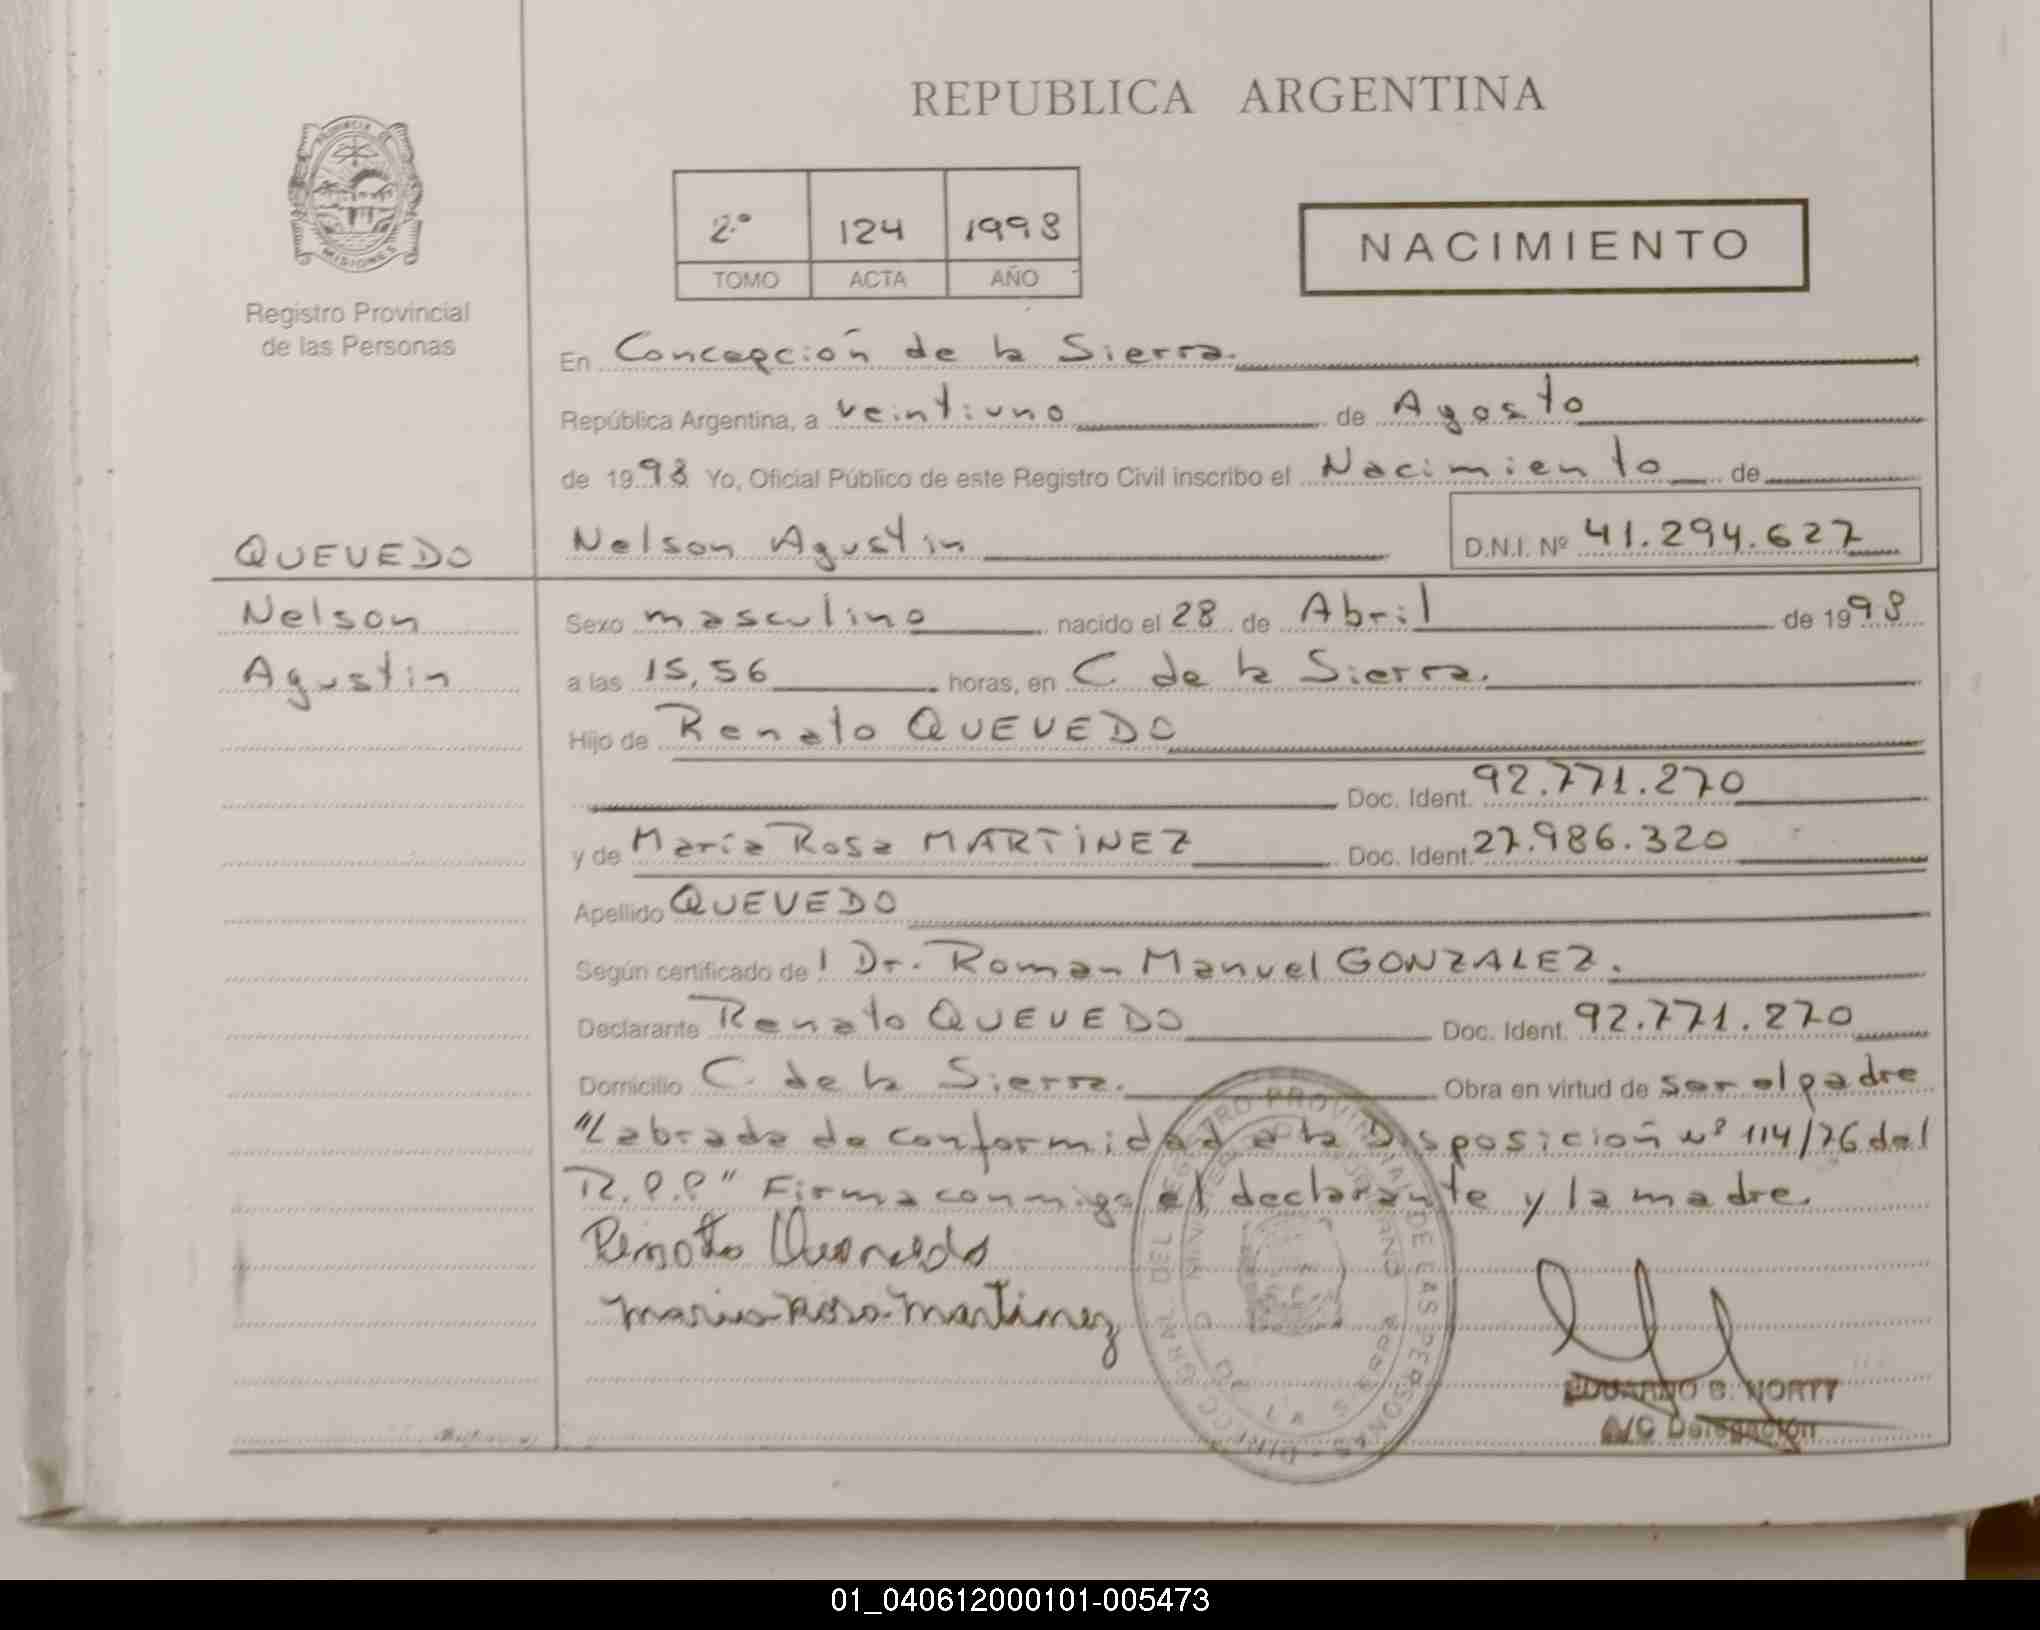 REPUBLICA ARGENTINA
PROVINCIA DE
MISIONES
Registro Provincial
de las Personas
2º 124 1998
TOMO ACTA AÑO
NACIMIENTO
En Concepción de la Sierra.
República Argentina, a veintiuno de Agosto
de 1998 Yo, Oficial Público de este Registro Civil inscribo el Nacimiento de
QUEVEDO Nelson Agustin D.N.I. Nº 41.294.627
Nelson Sexo masculino nacido el 28 de Abril de 1998
Agustin a las 15,56 horas, en C. de la Sierra.
Hijo de Renato QUEVEDO
Doc. Ident. 92.771.270
y de María Rosa MARTINEZ Doc. Ident. 27.986.320
Apellido QUEVEDO
Según certificado de l Dr. Roman Manuel GONZALEZ.
Declarante Renato QUEVEDO Doc. Ident. 92.771.270
Domicilio C. de la Sierra. Obra en virtud de ser el padre
"Labrada de conformidad a la Disposición Nº 114/76 del
R.P.P" Firma conmigo el declarante y la madre.
Renato Quevedo
Maria Rosa Martinez
DEL REGISTRO PROVINCIAL DE LAS PERSONAS
EDUARDO
A/C Delegación
01_040612000101-005473